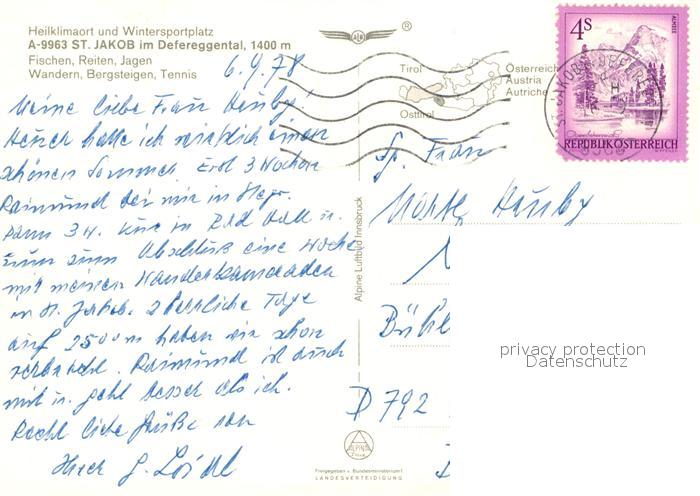 Heilklimaort und Wintersportplatz
A-9963 ST. JAKOB im Defereggental, 1400 m
Fischen, Reiten, Jagen
Wandern, Bergsteigen, Tennis
6.9.78
Meine liebe Frau Hauby!
Heuer hatte ich wirklich einen
schönen Sommer. Erst 3 Wochen
Raimund bei mir in
dann 3 W. Kur in Bad Hall u.
nun zum Abschluß eine Woche
mit meinen Wanderkameraden
in St. Jakob. 2 herrliche Tage
auf 2500 m haben wir schon
verbracht. Raimund ist auch
mit u. geht besser als ich.
Recht liebe Grüße von
Ihrer G.
®
Tirol
Osttirol
Österreich
Austria
Autriche
4S
ALMSEE
REPUBLIK ÖSTERREICH
Alpine Luftbild Innsbruck
Frau
Hauby
Bühl
D 792
privacy protection
Datenschutz
ALPINE
Freigegeben v. Bundesministerium f.
LANDESVERTEIDIGUNG